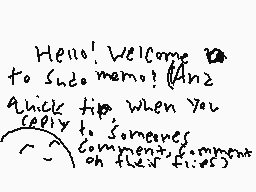 Hello! Welcome
to sudomemo! (And
quick tip, when you
reply to someones
comment, comment
on their flies)